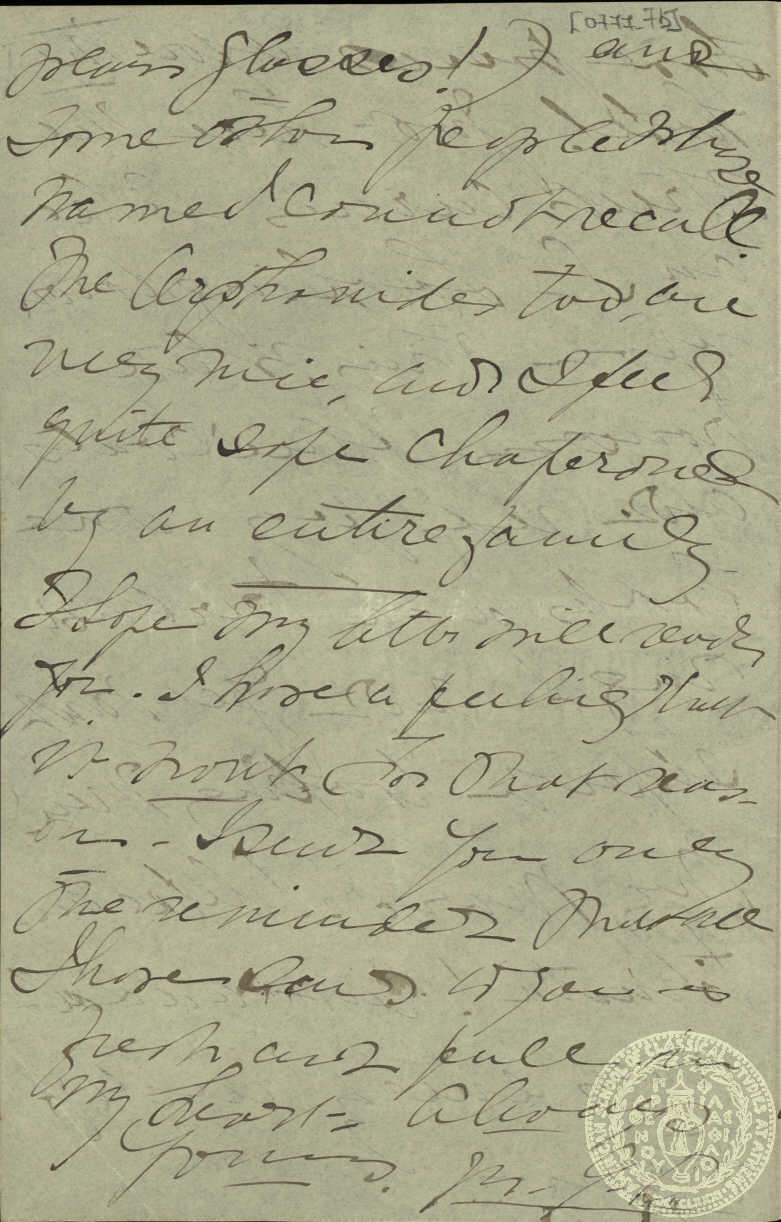 [0777_7b]
wears glasses!) and
some other people whose
names I cannot recall.
The Orphanides too, are
very nice, and I feel
quite safe chaperoned
by an entire family
I hope my letter will reach
you. I have a feeling that
it wont. For that reas-
on - I send you only
the reminder that all
I have said to you is
fresh and full in
my heart - Always
Yours.